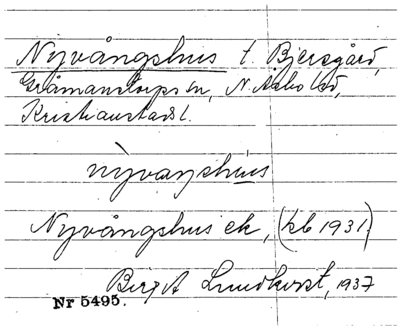 Nyvångshus t. Bjersgård,
Gråmanstorps sn, N. Åsbo hd,
Kristianstads l.
nỳvaŋshu̲s
Nyvångshus ek, (kb 1931)
Birgit Lundkvist, 1937
Nr 5495.